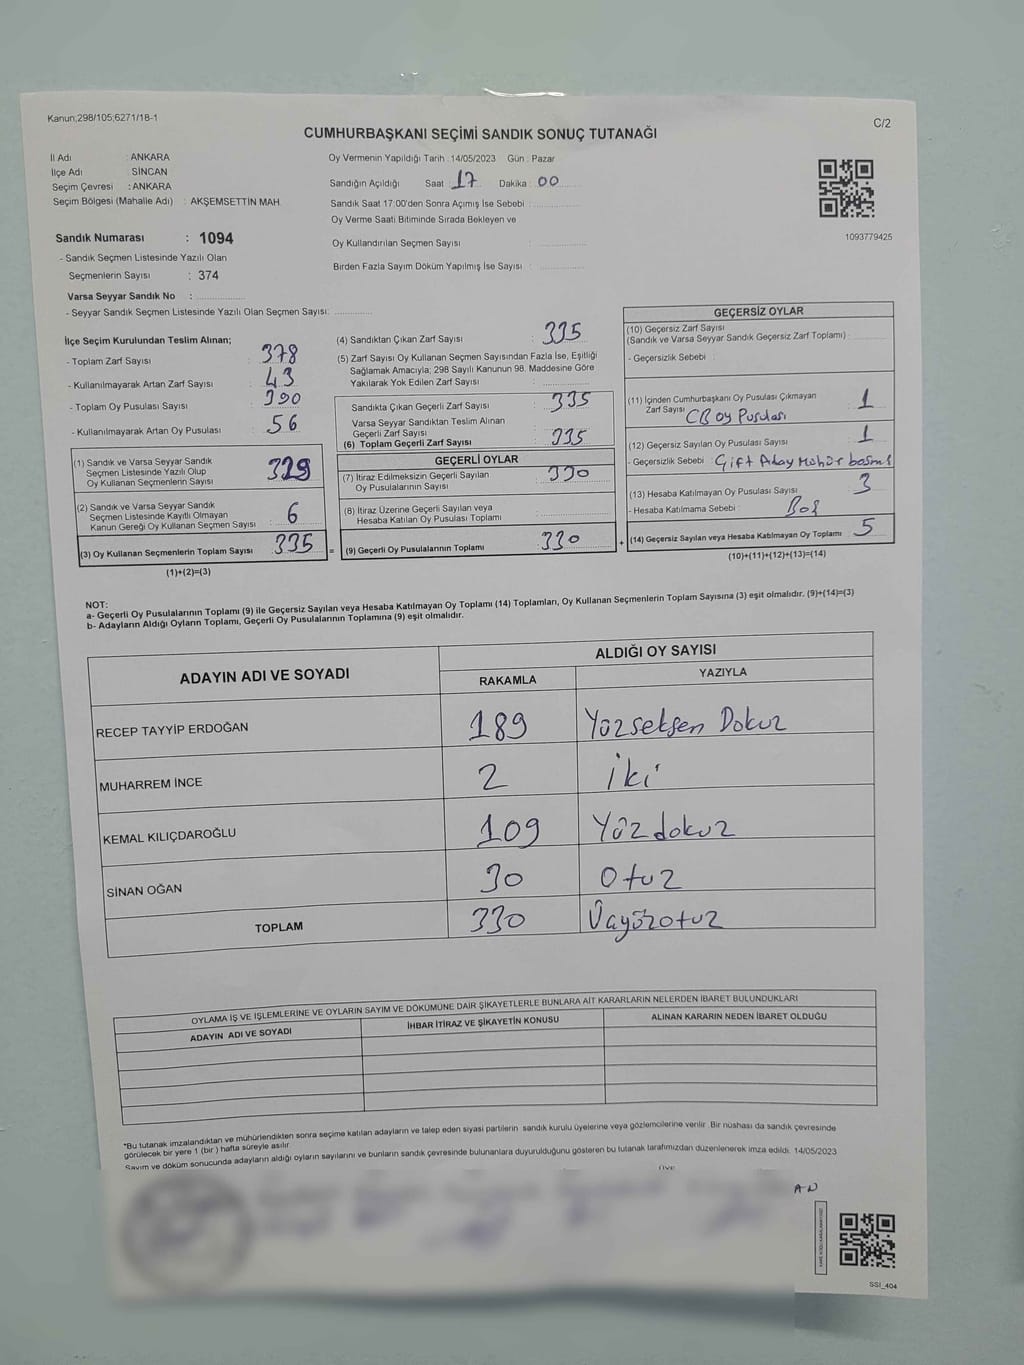 Kanun;298/105;6271/18-1
C/2
CUMHURBAŞKANI SEÇİMİ SANDIK SONUÇ TUTANAĞI
İl Adı : ANKARA
İlçe Adı : SİNCAN
Seçim Çevresi : ANKARA
Seçim Bölgesi (Mahalle Adı) : AKŞEMSETTİN MAH.
Oy Vermenin Yapıldığı Tarih : 14/05/2023 Gün : Pazar
Sandığın Açıldığı Saat : 17 Dakika : 00
Sandık Saat 17:00'den Sonra Açımış İse Sebebi :
Oy Verme Saati Bitiminde Sırada Bekleyen ve
Oy Kullandırılan Seçmen Sayısı :
Birden Fazla Sayım Döküm Yapılmış İse Sayısı :
1093779425
Sandık Numarası : 1094
- Sandık Seçmen Listesinde Yazılı Olan
Seçmenlerin Sayısı : 374
Varsa Seyyar Sandık No :
- Seyyar Sandık Seçmen Listesinde Yazılı Olan Seçmen Sayısı:
İlçe Seçim Kurulundan Teslim Alınan;
- Toplam Zarf Sayısı : 378
- Kullanılmayarak Artan Zarf Sayısı : 43
- Toplam Oy Pusulası Sayısı : 390
- Kullanılmayarak Artan Oy Pusulası : 56
(1) Sandık ve Varsa Seyyar Sandık
Seçmen Listesinde Yazılı Olup
Oy Kullanan Seçmenlerin Sayısı : 329
(2) Sandık ve Varsa Seyyar Sandık
Seçmen Listesinde Kayıtlı Olmayan
Kanun Gereği Oy Kullanan Seçmen Sayısı : 6
(3) Oy Kullanan Seçmenlerin Toplam Sayısı : 335
(1)+(2)=(3)
(4) Sandıktan Çıkan Zarf Sayısı : 335
(5) Zarf Sayısı Oy Kullanan Seçmen Sayısından Fazla İse, Eşitliği
Sağlamak Amacıyla; 298 Sayılı Kanunun 98. Maddesine Göre
Yakılarak Yok Edilen Zarf Sayısı :
Sandıkta Çıkan Geçerli Zarf Sayısı : 335
Varsa Seyyar Sandıktan Teslim Alınan
Geçerli Zarf Sayısı :
(6) Toplam Geçerli Zarf Sayısı : 335
GEÇERLİ OYLAR
(7) İtiraz Edilmeksizin Geçerli Sayılan
Oy Pusulalarının Sayısı : 330
(8) İtiraz Üzerine Geçerli Sayılan veya
Hesaba Katılan Oy Pusulası Toplamı :
= (9) Geçerli Oy Pusulalarının Toplamı : 330 +
GEÇERSİZ OYLAR
(10) Geçersiz Zarf Sayısı
(Sandık ve Varsa Seyyar Sandık Geçersiz Zarf Toplamı) :
- Geçersizlik Sebebi :
(11) İçinden Cumhurbaşkanı Oy Pusulası Çıkmayan
Zarf Sayısı 1
CB oy Pusulası
(12) Geçersiz Sayılan Oy Pusulası Sayısı : 1
- Geçersizlik Sebebi : Çift Aday Mühür basma
(13) Hesaba Katılmayan Oy Pusulası Sayısı : 3
- Hesaba Katılmama Sebebi : Boş
(14) Geçersiz Sayılan veya Hesaba Katılmayan Oy Toplamı : 5
(10)+(11)+(12)+(13)=(14)
NOT:
a- Geçerli Oy Pusulalarının Toplamı (9) ile Geçersiz Sayılan veya Hesaba Katılmayan Oy Toplamı (14) Toplamları, Oy Kullanan Seçmenlerin Toplam Sayısına (3) eşit olmalıdır. (9)+(14)=(3)
b- Adayların Aldığı Oyların Toplamı, Geçerli Oy Pusulalarının Toplamına (9) eşit olmalıdır.
ADAYIN ADI VE SOYADI
ALDIĞI OY SAYISI
RAKAMLA YAZIYLA
RECEP TAYYİP ERDOĞAN 189 Yüzseksen Dokuz
MUHARREM İNCE 2 iki
KEMAL KILIÇDAROĞLU 109 Yüzdokuz
SİNAN OĞAN 30 Otuz
TOPLAM 330 Üçyüzotuz
OYLAMA İŞ VE İŞLEMLERİNE VE OYLARIN SAYIM VE DÖKÜMÜNE DAİR ŞİKAYETLERLE BUNLARA AİT KARARLARIN NELERDEN İBARET BULUNDUKLARI
ADAYIN ADI VE SOYADI İHBAR İTİRAZ VE ŞİKAYETİN KONUSU ALINAN KARARIN NEDEN İBARET OLDUĞU
*Bu tutanak imzalandıktan ve mühürlendikten sonra seçime katılan adayların ve talep eden siyasi partilerin sandık kurulu üyelerine veya gözlemcilerine verilir. Bir nüshası da sandık çevresinde
görülecek bir yere 1 (bir) hafta süreyle asılır.
Sayım ve döküm sonucunda adayların aldığı oyların sayılarını ve bunların sandık çevresinde bulunanlara duyurulduğunu gösteren bu tutanak tarafımızdan düzenlenerek imza edildi. 14/05/2023
AN
SSI_404